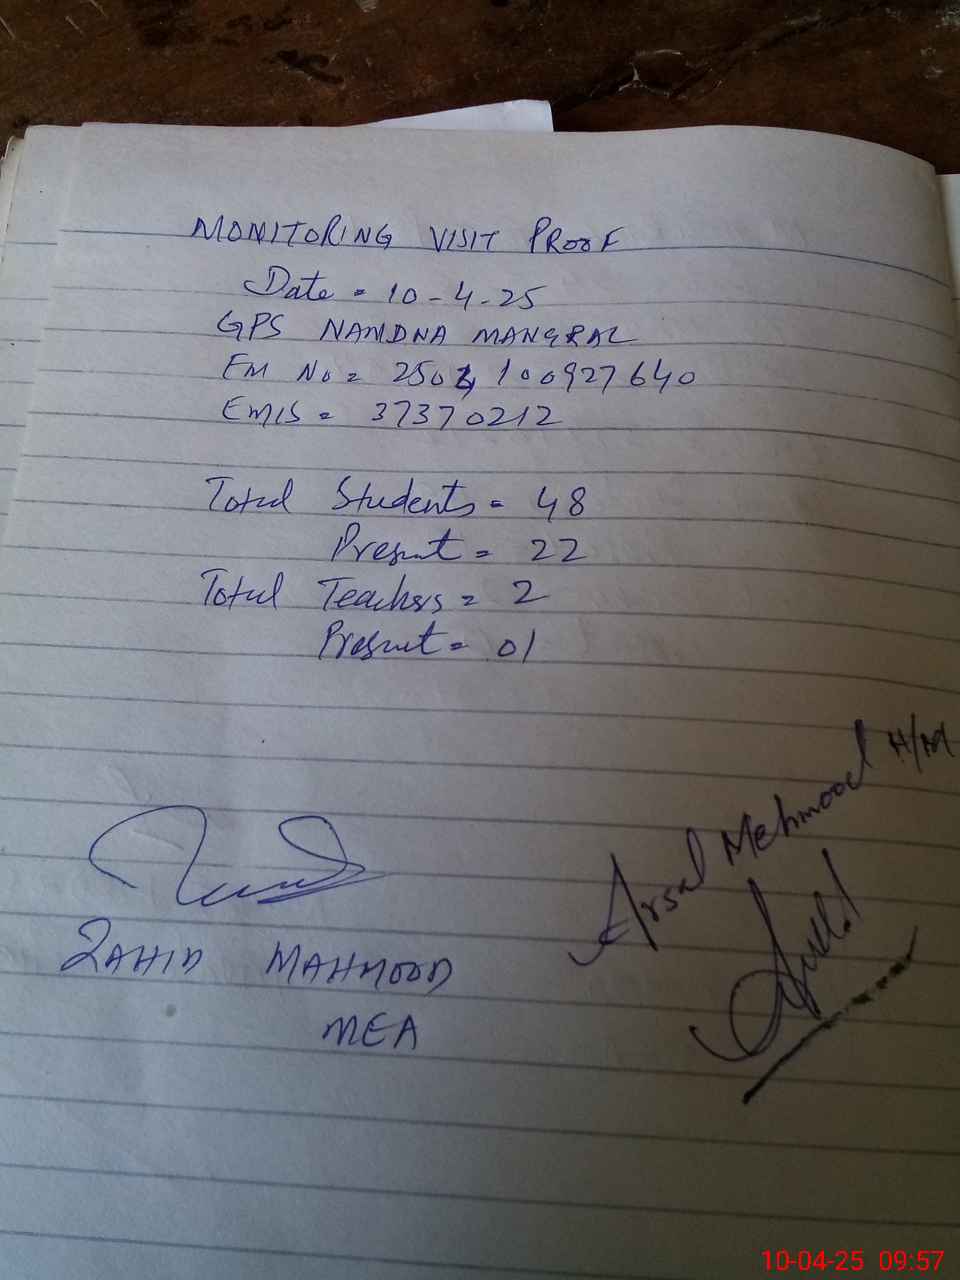 MONITORING VISIT PROOF
Date = 10-4-25
GPS NANDNA MANGRAL
EM No = 2504100927640
EMIS = 37370212
Total Students = 48
Present = 22
Total Teachers = 2
Present = 01
Arsal Mehmood H/M
ZAHID MAHMOOD
MEA
10-04-25 09:57